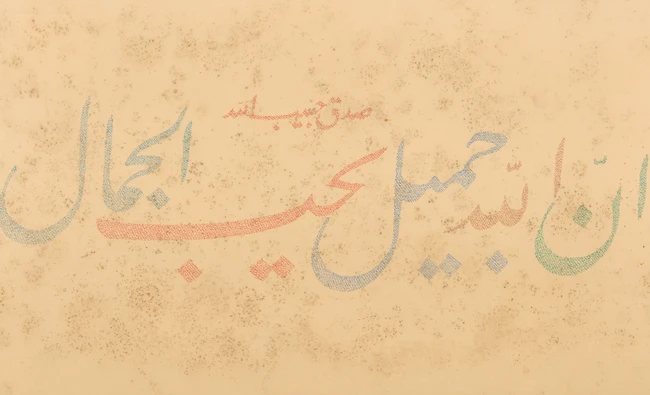 صدق حبیب الله
ان الله جمیل یحب الجمال